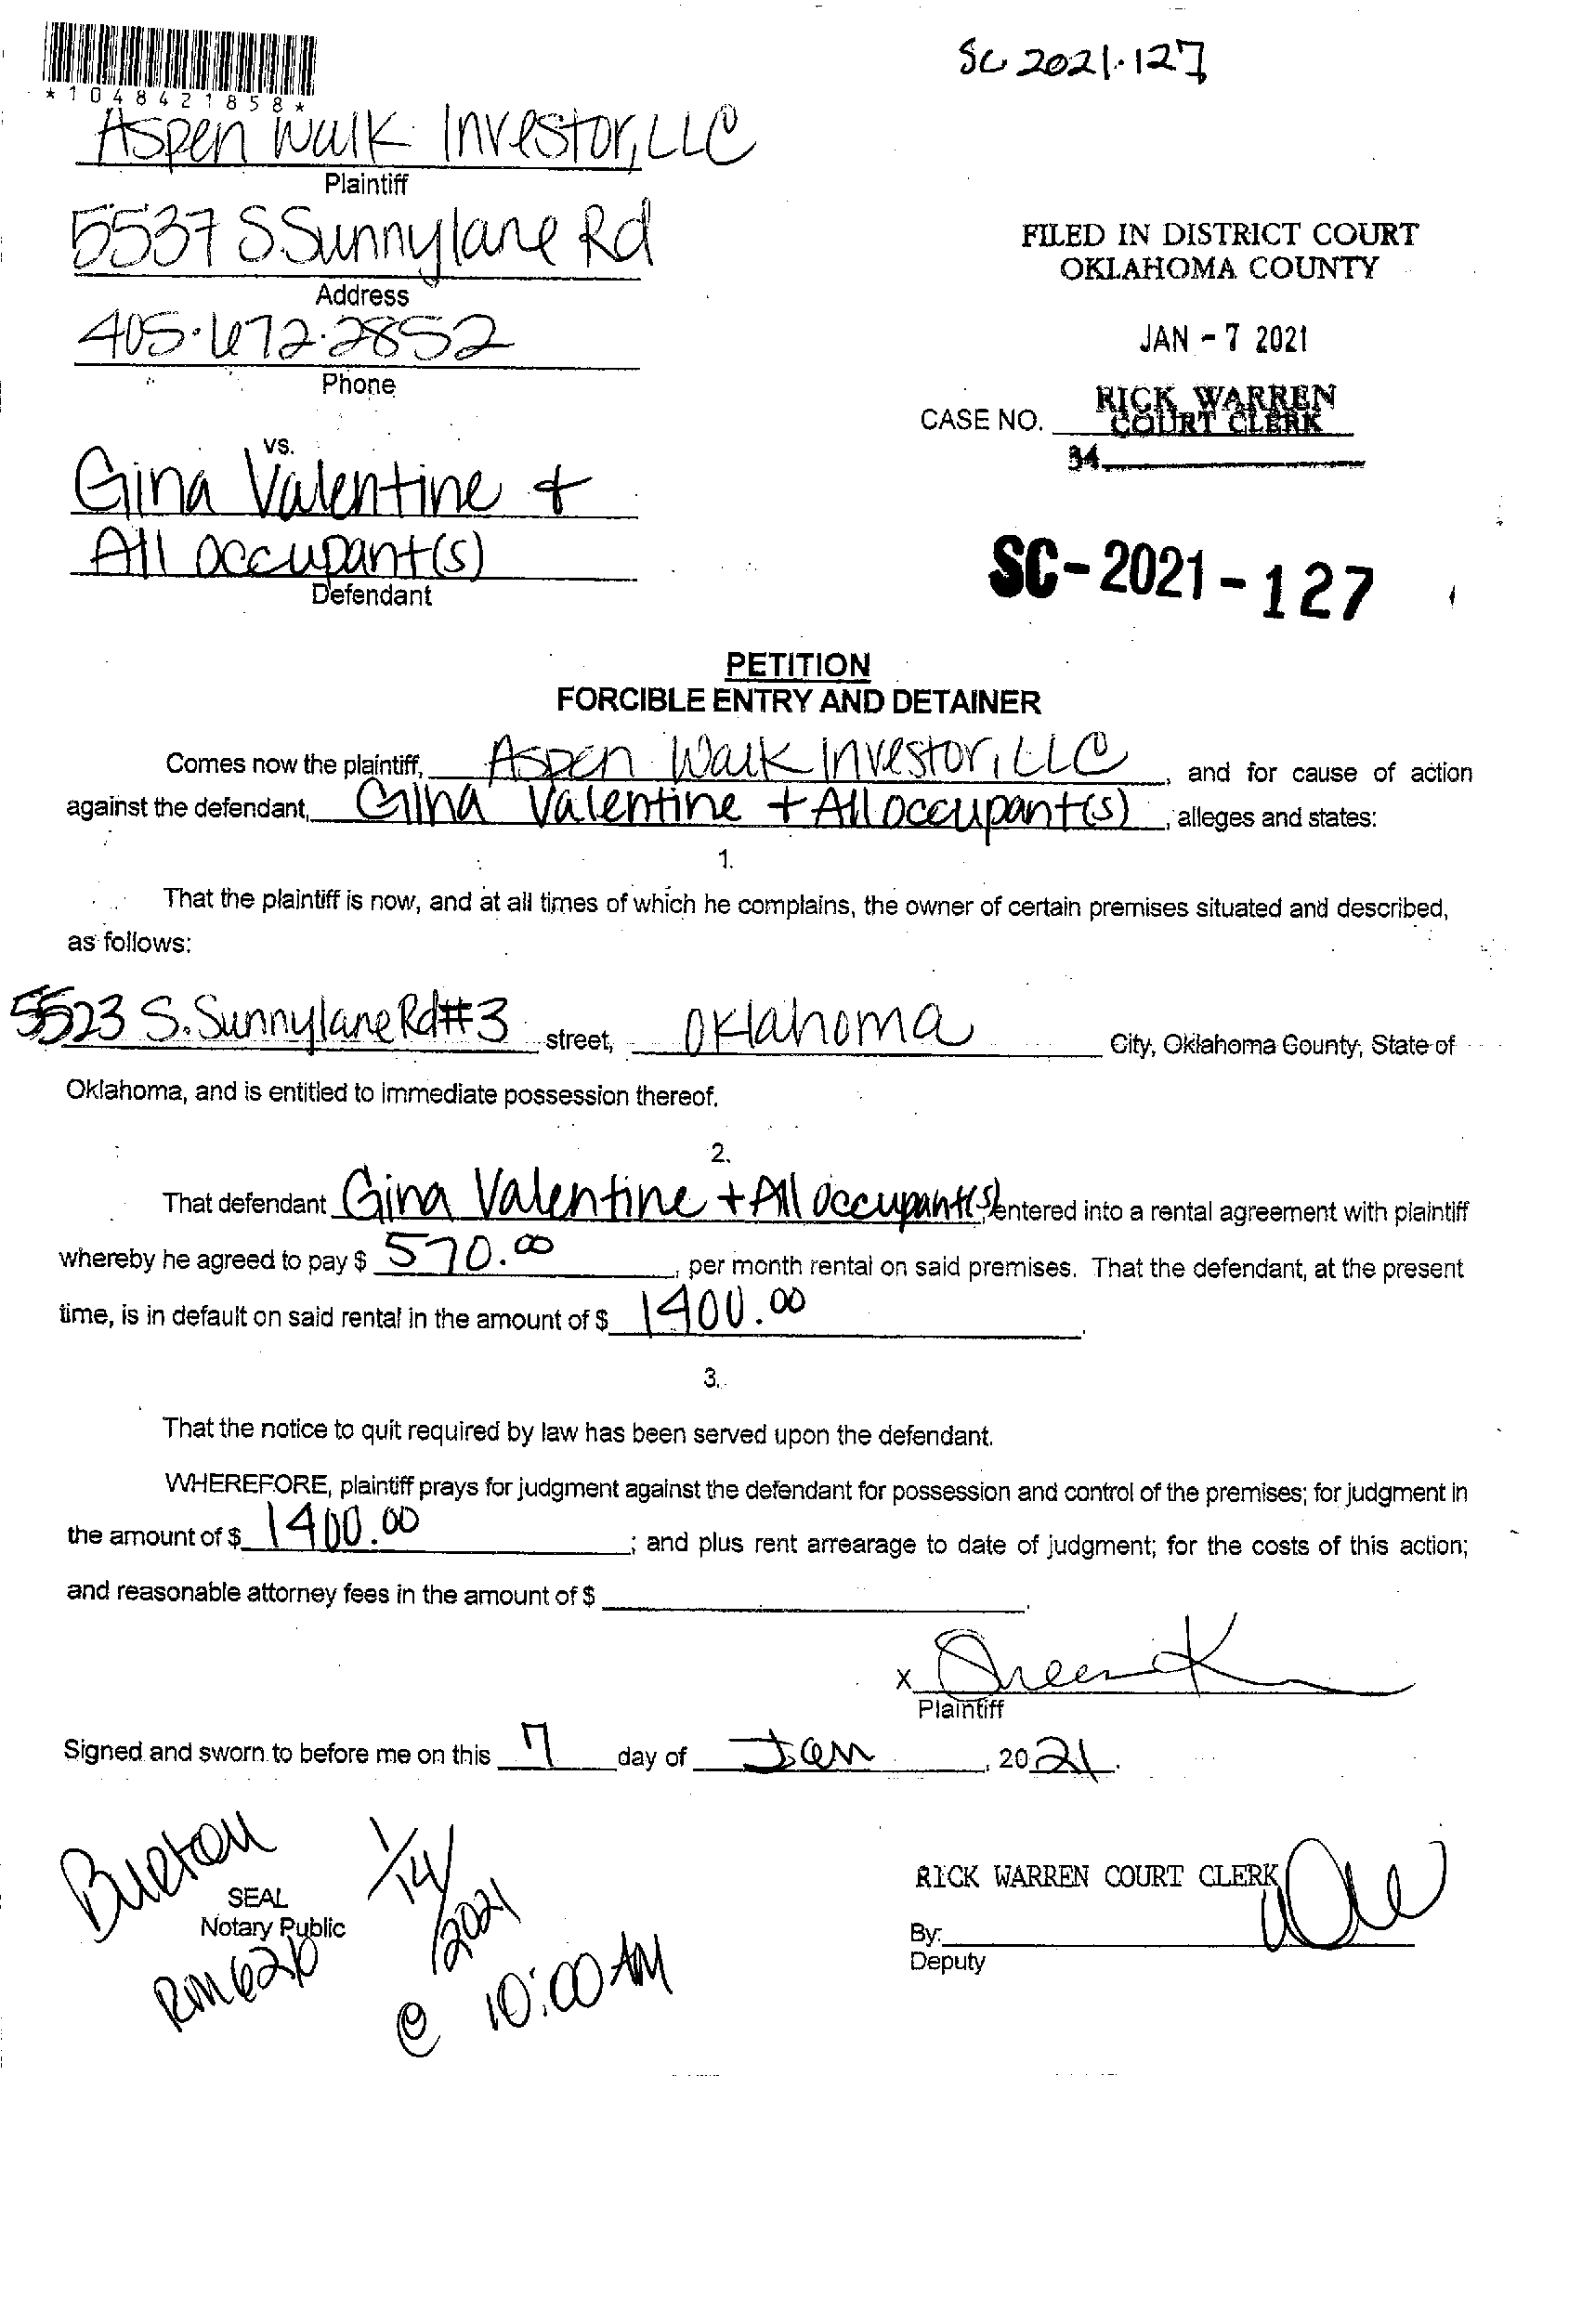 SC 2021-127
*1048421858*
Aspen Walk Investor, LLC
Plaintiff
5537 S Sunnylane Rd
Address
405.672.2852
Phone
FILED IN DISTRICT COURT
OKLAHOMA COUNTY
JAN - 7 2021
RICK WARREN
COURT CLERK
CASE NO.
34
vs.
Gina Valentine +
All occupant(s)
Defendant
SC-2021-127
PETITION
FORCIBLE ENTRY AND DETAINER
Comes now the plaintiff, Aspen Walk Investor, LLC, and for cause of action
against the defendant, Gina Valentine + All occupant(s), alleges and states:
1.
That the plaintiff is now, and at all times of which he complains, the owner of certain premises situated and described,
as follows:
5523 S. Sunnylane Rd #3 street, Oklahoma City, Oklahoma County, State of
Oklahoma, and is entitled to immediate possession thereof.
2.
That defendant Gina Valentine + All occupant(s), entered into a rental agreement with plaintiff
whereby he agreed to pay $ 570.00, per month rental on said premises. That the defendant, at the present
time, is in default on said rental in the amount of $ 1400.00.
3.
That the notice to quit required by law has been served upon the defendant.
WHEREFORE, plaintiff prays for judgment against the defendant for possession and control of the premises; for judgment in
the amount of $ 1400.00; and plus rent arrearage to date of judgment; for the costs of this action;
and reasonable attorney fees in the amount of $
X
Plaintiff
Signed and sworn to before me on this 7 day of Jan, 2021.
Burton
SEAL
Notary Public
1/14/2021
@ 10:00 AM
RICK WARREN COURT CLERK
By:
Deputy